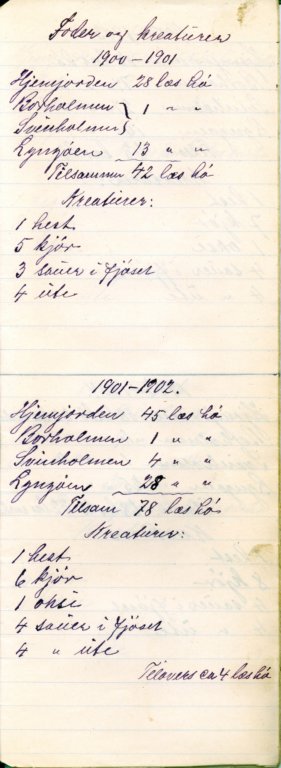 Foder og kreatürer
1900-1901
Hjemjorden 28 læs hö
Borholmen } 1 " "
Svinholmen
Lyngöen 13 " "
Tilsammen 42 læs hö
Kreatürer:
1 hest
5 kjör
3 saüer i fjöset
4 üte
1901-1902.
Hjemjorden 45 læs hö
Borholmen 1 " "
Svinholmen 4 " "
Lyngöen 28 " "
Tilsam 78 læs hö
Kreatürer:
1 hest
6 kjör
1 okse
4 saüer i fjöset
4 " üte
Tilovers ca 4 læs hö